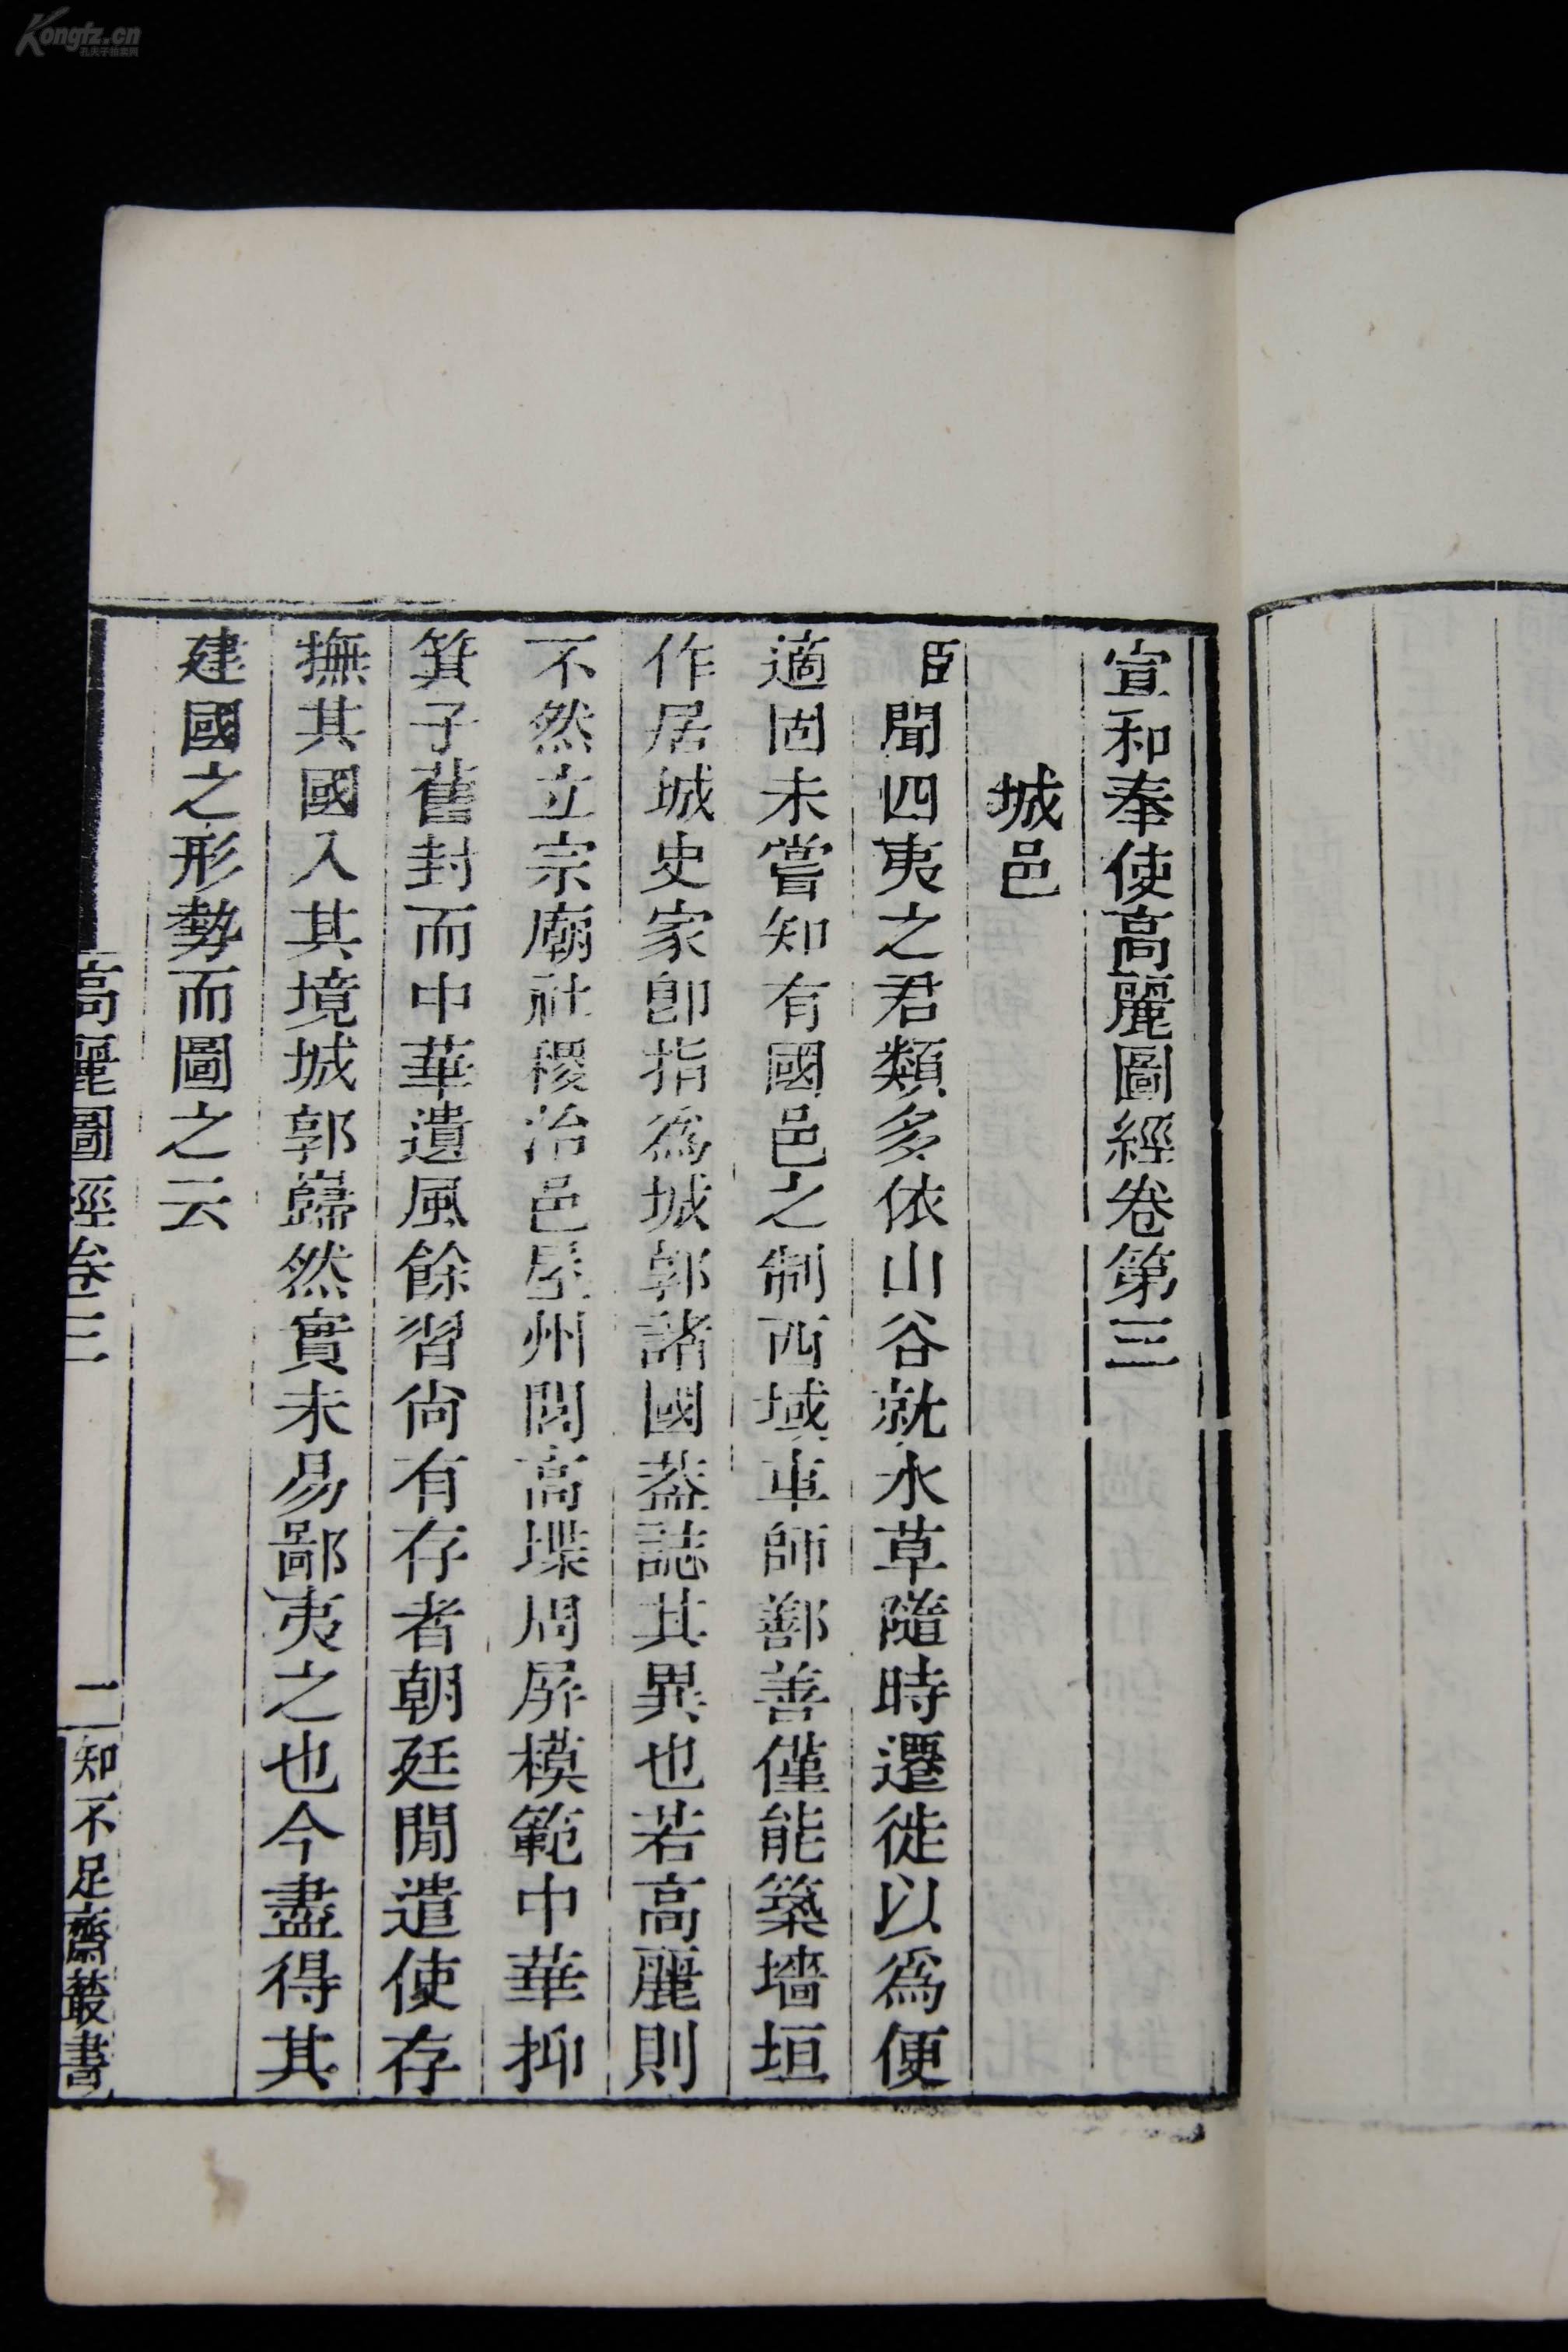 宣和奉使高麗圖經卷第三
城邑
臣聞四夷之君類多依山谷就水草隨時遷徙以爲便
適固未嘗知有國邑之制西域車師鄯善僅能築墻垣
作居城史家卽指爲城郭諸國葢誌其異也若高麗則
不然立宗廟社稷治邑屋州閭高堞周屏模範中華抑
箕子舊封而中華遺風餘習尙有存者朝廷閒遣使存
撫其國入其境城郭巋然實未易鄙夷之也今盡得其
建國之形勢而圖之云
高麗圖經卷三
一
知不足齋叢書
Kongfz.cn
孔夫子拍卖网